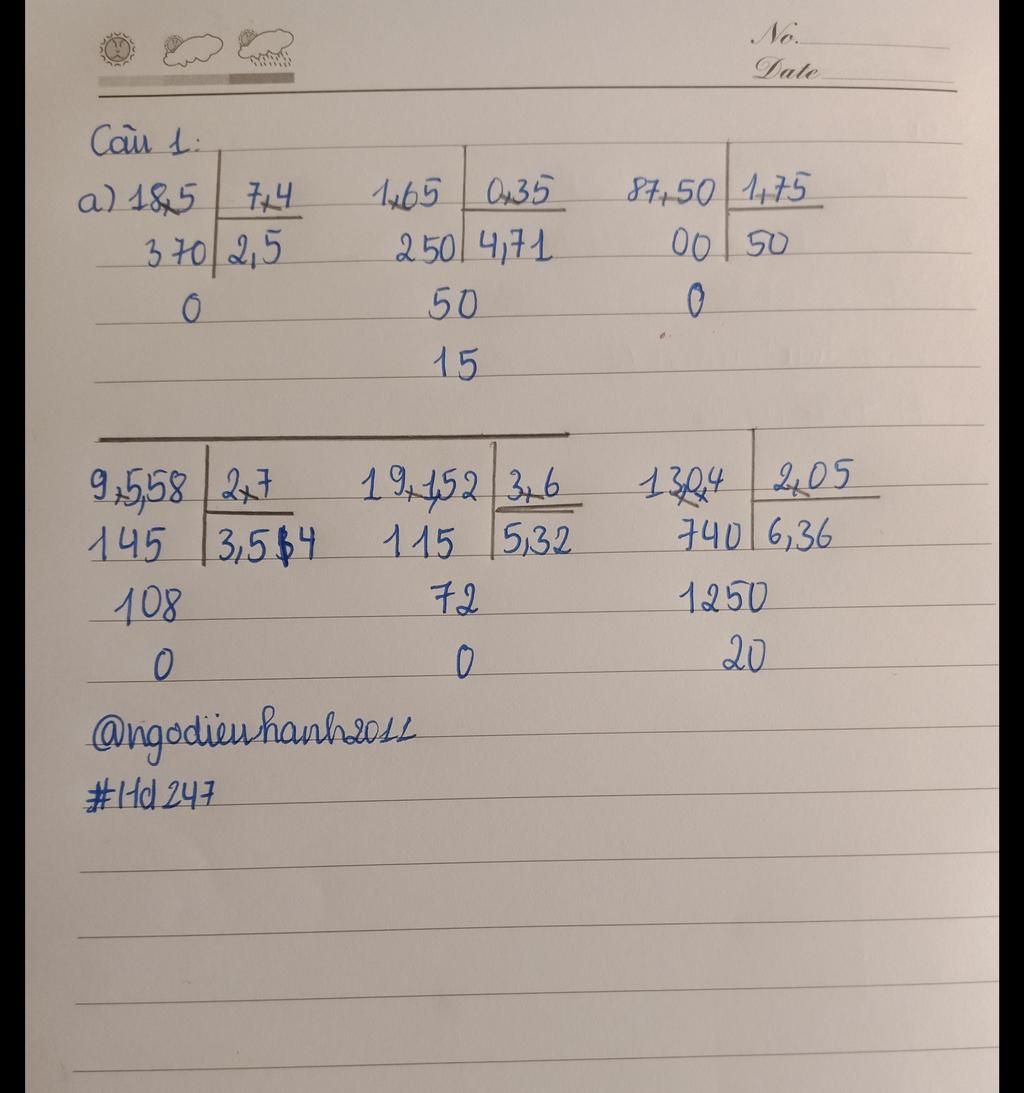 No.
Date
Câu 1:
a) 18,5 7,4 1,65 0,35 87,50 1,75
370 2,5 250 4,71 00 50
0 50 0
15
9,5,58 2,7 19,1,52 3,6 13,0,4 2,05
145 3,54 115 5,32 740 6,36
108 72 1250
0 0 20
@ngodieuhanh2011
#Hd247